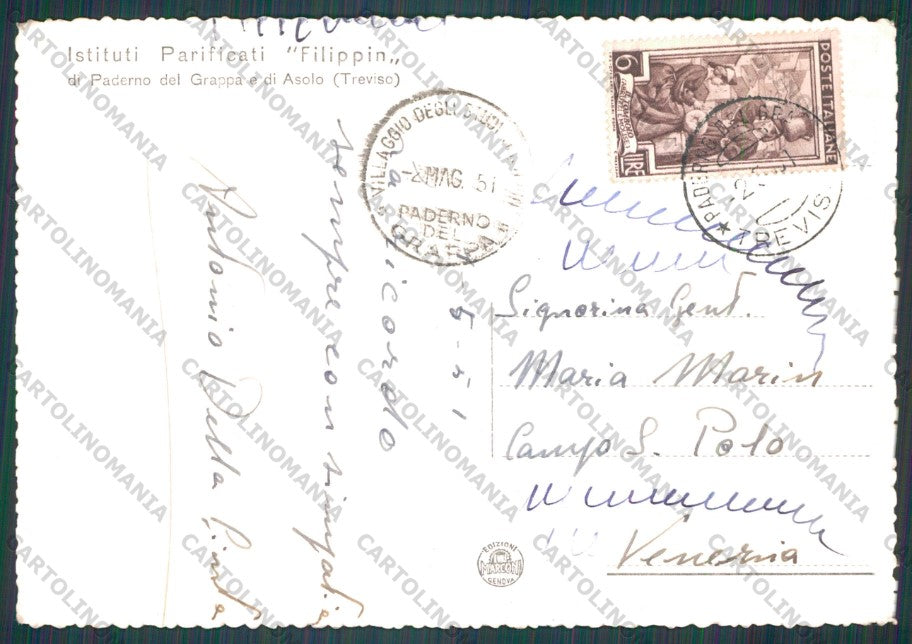 Istituti Parificati "Filippin„
di Paderno del Grappa e di Asolo (Treviso)
VILLAGGIO DEGLI STUDI
-2 MAG. 51
PADERNO
DEL
GRAPPA
6
LIRE
POSTE ITALIANE
★ PADERNO DEL GRAPPA
TREVISO
a ricordo
sempre con simpatia
Antonio Della
5-51
Signorina Gent.
Maria Marin
Campo S. Polo
Venezia
EDIZIONI
MARCONI
GENOVA
CARTOLINOMANIA